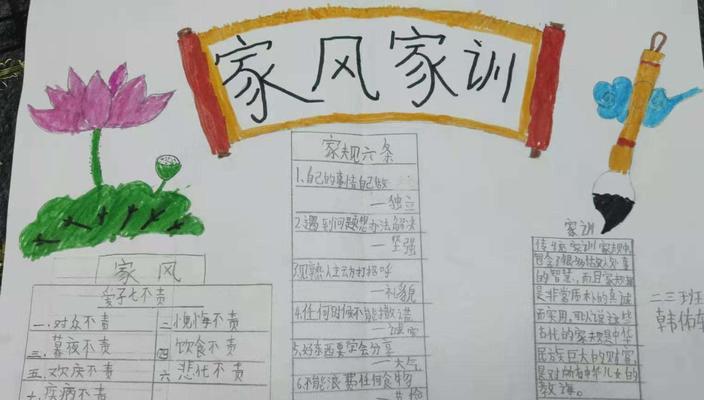 家风家训
家规六条
1.自己的事情自己做
—独立
2.遇到问题想办法解决
—坚强
3.见熟人主动打招呼
—礼貌
4.任何时候不能撒谎
—诚实
5.好东西要学会分享
—大气
6.不能浪费任何食物
家风
爱子七不责
一.对众不责
二愧悔不责
三.暮夜不责
四饮食不责
五欢庆不责
六悲忧不责
七疾病不责
家训
传统家训家规中
包含了很多
的智慧,而且家规
是非常质朴的真诚
而实用,所以说这些
古代的家规是中华
民族巨大的财富
是对所有中华儿女的
教诲。
二三班
韩佑